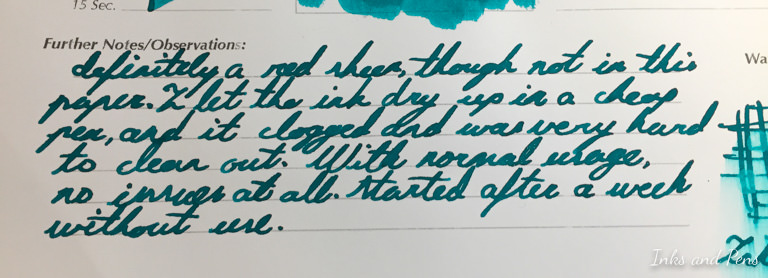 15 Sec.
Further Notes/Observations:
definitely a red sheen, though not in this
paper. I let the ink dry up in a cheap
pen, and it clogged and was very hard
to clean out. With normal usage,
no issues at all. Started after a week
without use.
Wa
Inks and Pens